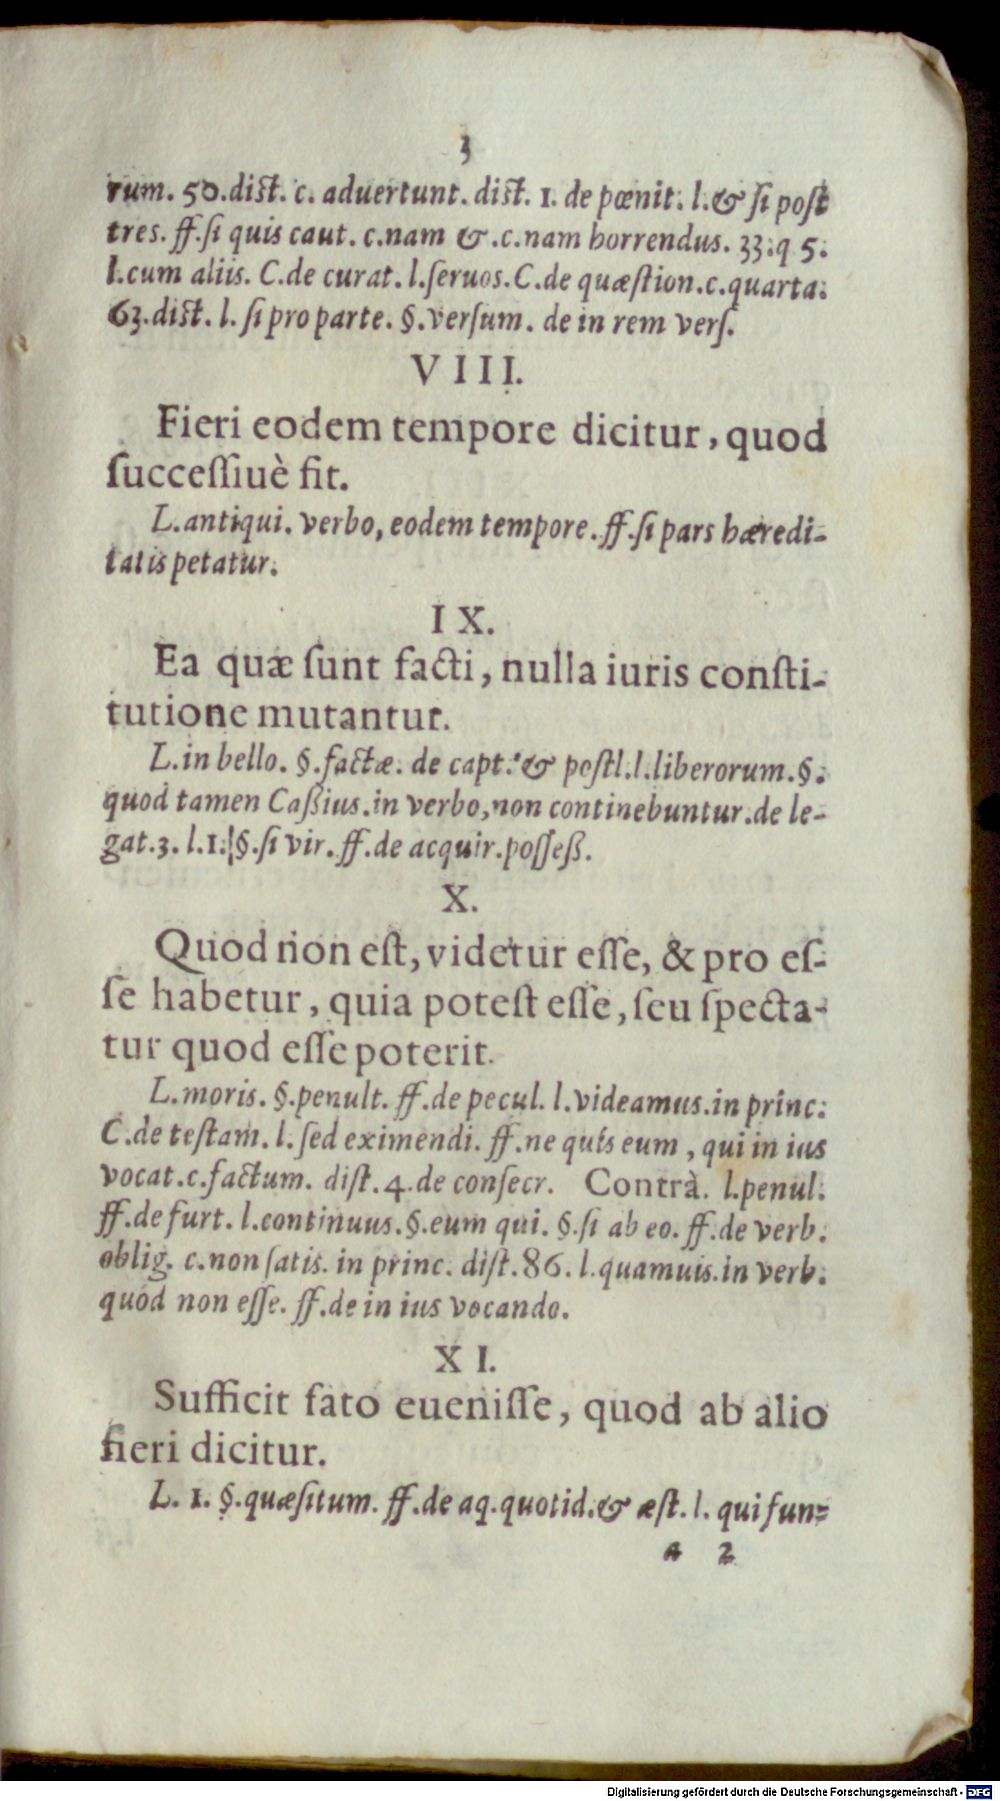 3
rum. 50.dist. c. aduertunt. dist. 1. de pœnit. l.& ſi poſt
tres. ff.ſi quis caut. c.nam &.c.nam horrendus. 33.q 5.
l.cum aliis. C.de curat. l.ſeruos.C.de quæſtion.c.quarta.
63.dist. l. ſi pro parte. §.verſum. de in rem verſ.
VIII.
Fieri eodem tempore dicitur, quod
ſucceſſiuè fit.
L.antiqui. verbo, eodem tempore. ff.ſi pars hæredi-
tatis petatur.
IX.
Ea quæ ſunt facti, nulla iuris conſti-
tutione mutantur.
L.in bello. §.factæ. de capt. & poſtl.l.liberorum.§.
quod tamen Caßius.in verbo,non continebuntur.de le-
gat.3. l.1.§.ſi vir. ff.de acquir.poſſeß.
X.
Quod non eſt, videtur eſſe, & pro eſ-
ſe habetur, quia poteſt eſſe, ſeu ſpecta-
tur quod eſſe poterit.
L.moris. §.penult. ff.de pecul. l.videamus.in princ.
C.de teſtam. l.ſed eximendi. ff.ne quis eum, qui in ius
vocat.c.factum. diſt.4.de conſecr. Contrà. l.penul.
ff.de furt. l.continuus.§.eum qui. §.ſi ab eo. ff.de verb.
oblig. c.non ſatis. in princ. diſt.86. l.quamuis.in verb.
quòd non eſſe. ff.de in ius vocando.
XI.
Sufficit fato eueniſſe, quod ab alio
fieri dicitur.
L. 1. §.quæſitum. ff.de aq.quotid.& æſt. l. qui fun-
a 2
Digitalisierung gefördert durch die Deutsche Forschungsgemeinschaft - DFG